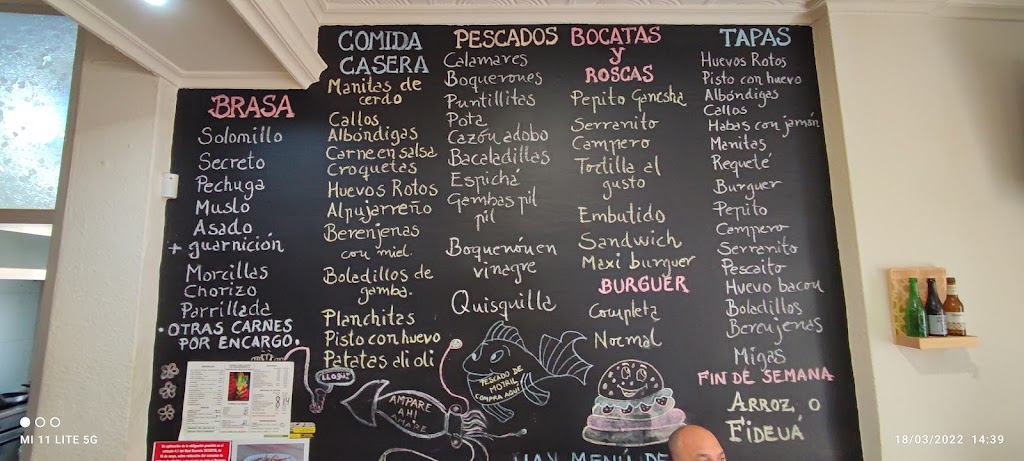 BRASA
Solomillo
Secreto
Pechuga
Muslo
Asado
+ guarnición
Morcillas
Chorizo
Parrillada
• OTRAS CARNES
POR ENCARGO.
COMIDA
CASERA
Manitas de
cerdo
Callos
Albóndigas
Carne en salsa
Croquetas
Huevos Rotos
Alpujarreño
Berenjenas
con miel.
Boladillos de
gamba.
Planchitas
Pisto con huevo
Patatas ali oli
PESCADOS
Calamares
Boquerones
Puntillitas
Pota
Cazón adobo
Bacaladillas
Espichá
Gambas pil
pil
Boquerón en
vinagre
Quisquilla
PESCADO DE
MOTRIL
COMPRA AQUI
BOCATAS
y
ROSCAS
Pepito Ganesha
Serranito
Campero
Tortilla al
gusto
Embutido
Sandwich
Maxi burguer
BURGUER
Completa
Normal
TAPAS
Huevos Rotos
Pisto con huevo
Albóndigas
Callos
Habas con jamón
Manitas
Requeté
Burguer
Pepito
Campero
Serranito
Pescaito
Huevo bacon
Boladillos
Berenjenas
Migas
FIN DE SEMANA
ARROZ O
FIDEUÁ
HAY MENÚ DE
MI 11 LITE 5G
18/03/2022 14:39